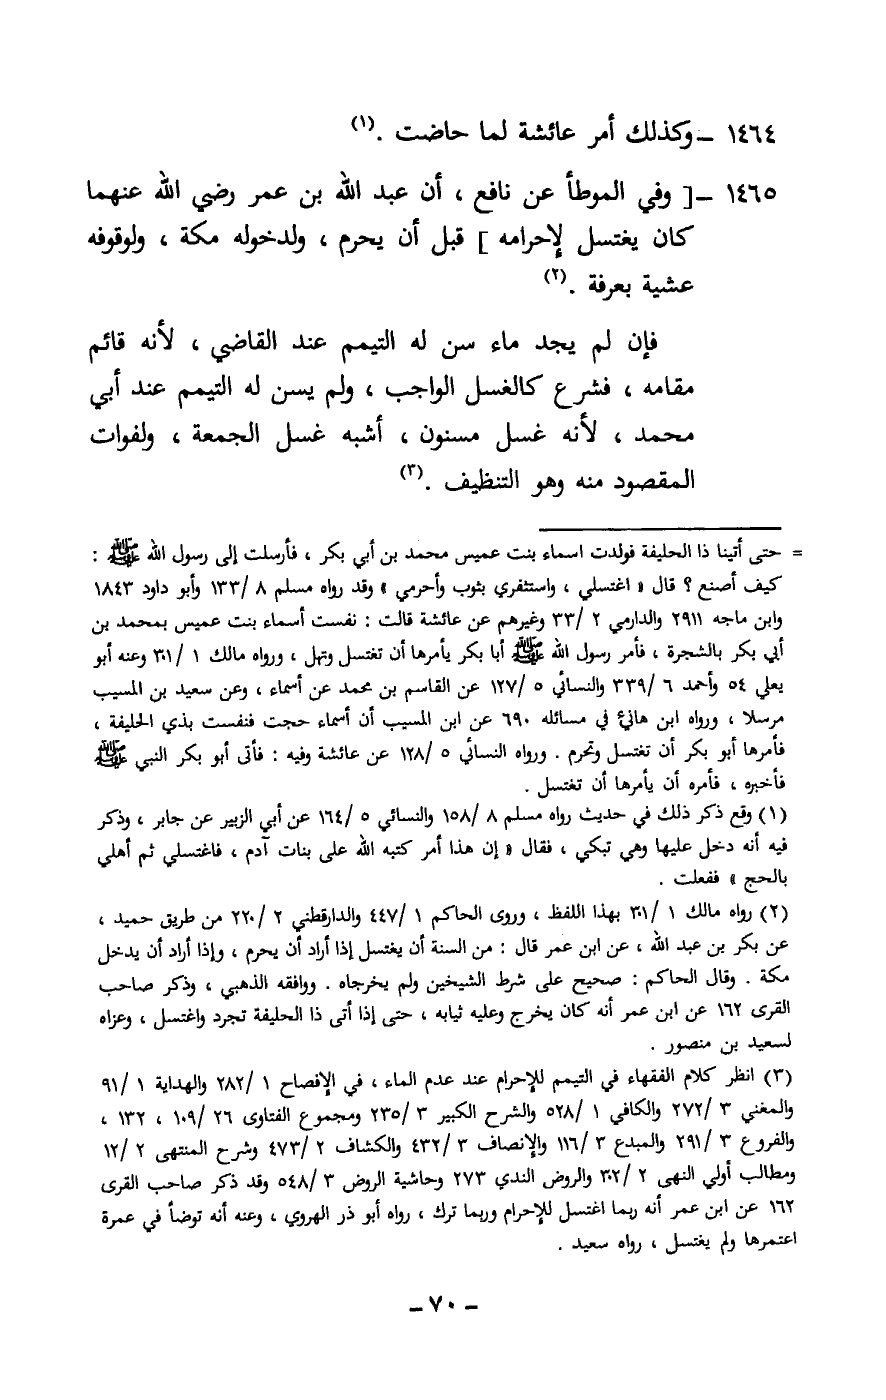 ١٤٦٤ – وكذلك أمر عائشة لما حاضت .(١)
١٤٦٥ – [ وفي الموطأ عن نافع ، أن عبد الله بن عمر رضي الله عنهما
كان يغتسل لإحرامه ] قبل أن يحرم ، ولدخوله مكة ، ولوقوفه
عشية بعرفة .(٢)
فإن لم يجد ماء سن له التيمم عند القاضي ، لأنه قائم
مقامه ، فشرع كالغسل الواجب ، ولم يسن له التيمم عند أبي
محمد ، لأنه غسل مسنون ، أشبه غسل الجمعة ، ولفوات
المقصود منه وهو التنظيف .(٣)
= حتى أتينا ذا الحليفة فولدت اسماء بنت عميس محمد بن أبي بكر ، فأرسلت إلى رسول الله ﷺ :
كيف أصنع ؟ قال « اغتسلي ، واستثفري بثوب وأحرمي » وقد رواه مسلم ٨ /١٣٣ وأبو داود ١٨٤٣
وابن ماجه ٢٩١١ والدارمي ٢ /٣٣ وغيرهم عن عائشة قالت : نفست أسماء بنت عميس بمحمد بن
أبي بكر بالشجرة ، فأمر رسول الله ﷺ أبا بكر يأمرها أن تغتسل وتهل ، ورواه مالك ١ /٣٠١ وعنه أبو
يعلي ٥٤ وأحمد ٦ /٣٣٩ والنسائي ٥ /١٢٧ عن القاسم بن محمد عن أسماء ، وعن سعيد بن المسيب
مرسلا ، ورواه ابن هانيء في مسائله ٦٩٠ عن ابن المسيب أن أسماء حجت فنفست بذي الحليفة ،
فأمرها أبو بكر أن تغتسل وتحرم . ورواه النسائي ٥ /١٢٨ عن عائشة وفيه : فأتى أبو بكر النبي ﷺ
فأخبره ، فأمره أن يأمرها أن تغتسل .
(١) وقع ذكر ذلك في حديث رواه مسلم ٨ /١٥٨ والنسائي ٥ /١٦٤ عن أبي الزبير عن جابر ، وذكر
فيه أنه دخل عليها وهي تبكي ، فقال « إن هذا أمر كتبه الله على بنات آدم ، فاغتسلي ثم أهلي
بالحج » ففعلت .
(٢) رواه مالك ١ /٣٠١ بهذا اللفظ ، وروى الحاكم ١ /٤٤٧ والدارقطني ٢ /٢٢٠ من طريق حميد ،
عن بكر بن عبد الله ، عن ابن عمر قال : من السنة أن يغتسل إذا أراد أن يحرم ، وإذا أراد أن يدخل
مكة . وقال الحاكم : صحيح على شرط الشيخين ولم يخرجاه . ووافقه الذهبي ، وذكر صاحب
القرى ١٦٢ عن ابن عمر أنه كان يخرج وعليه ثيابه ، حتى إذا أتى ذا الحليفة تجرد واغتسل ، وعزاه
لسعيد بن منصور .
(٣) انظر كلام الفقهاء في التيمم للإحرام عند عدم الماء ، في الإفصاح ١ /٢٨٢ والهداية ١ /٩١
والمغني ٣ /٢٧٢ والكافي ١ /٥٢٨ والشرح الكبير ٣ /٢٣٥ ومجموع الفتاوى ٢٦ /١٠٩ ، ١٣٢ ،
والفروع ٣ /٢٩١ والمبدع ٣ /١١٦ والإنصاف ٣ /٤٣٢ والكشاف ٢ /٤٧٣ وشرح المنتهى ٢ /١٢
ومطالب أولي النهى ٢ /٣٠٢ والروض الندي ٢٧٣ وحاشية الروض ٣ /٥٤٨ وقد ذكر صاحب القرى
١٦٢ عن ابن عمر أنه ربما اغتسل للإحرام وربما ترك ، رواه أبو ذر الهروي ، وعنه أنه توضأ في عمرة
اعتمرها ولم يغتسل ، رواه سعيد .
– ٧٠ –